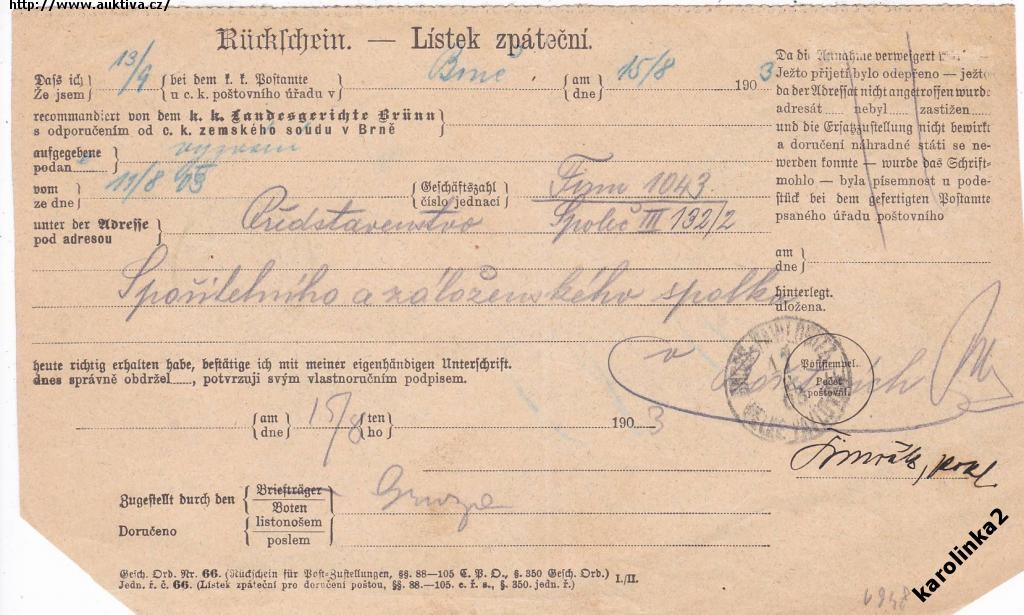 http://www.auktiva.cz/
Rückschein. — Lístek zpáteční.
Daß ich 13/9 bei dem k. k. Postamte Brně am 15/8 1903
Že jsem u c. k. poštovního úřadu v dne
recommandiert von dem k. k. Landesgerichte Brünn
s odporučením od c. k. zemského soudu v Brně
aufgegebene
podan
vom 11/8 03 Geschäftszahl Firm 1043
ze dne číslo jednací Společ III 132/2
unter der Adresse Představenstvo
pod adresou
Spořitelního a záloženského spolku
v
heute richtig erhalten habe, bestätige ich mit meiner eigenhändigen Unterschrift.
dnes správně obdržel......, potvrzuji svým vlastnoručním podpisem.
am 15/8 ten 1903
dne ho
Zugestellt durch den Briefträger
Boten
Doručeno listonošem
poslem
Gesch. Ord. Nr. 66. (Rückschein für Post-Zustellungen, §§. 88—105 C. P. O., §. 350 Gesch. Ord.) I./II.
Jedn. ř. č. 66. (Lístek zpáteční pro doručení poštou, §§. 88.—105. c. ř. s., §. 350. jedn. ř.)
Da die Annahme verweigert
Ježto přijetí bylo odepřeno — ježto
da der Adressat nicht angetroffen wurde
adresát...... nebyl...... zastižen......
und die Ersatzzustellung nicht bewirkt
a doručení náhradné státi se ne-
werden konnte — wurde das Schrift-
mohlo — byla písemnost u pode-
stück bei dem gefertigten Postamte
psaného úřadu poštovního
am
dne
hinterlegt.
uložena.
Poststempel.
Pečeť
poštovní.
karolinka2